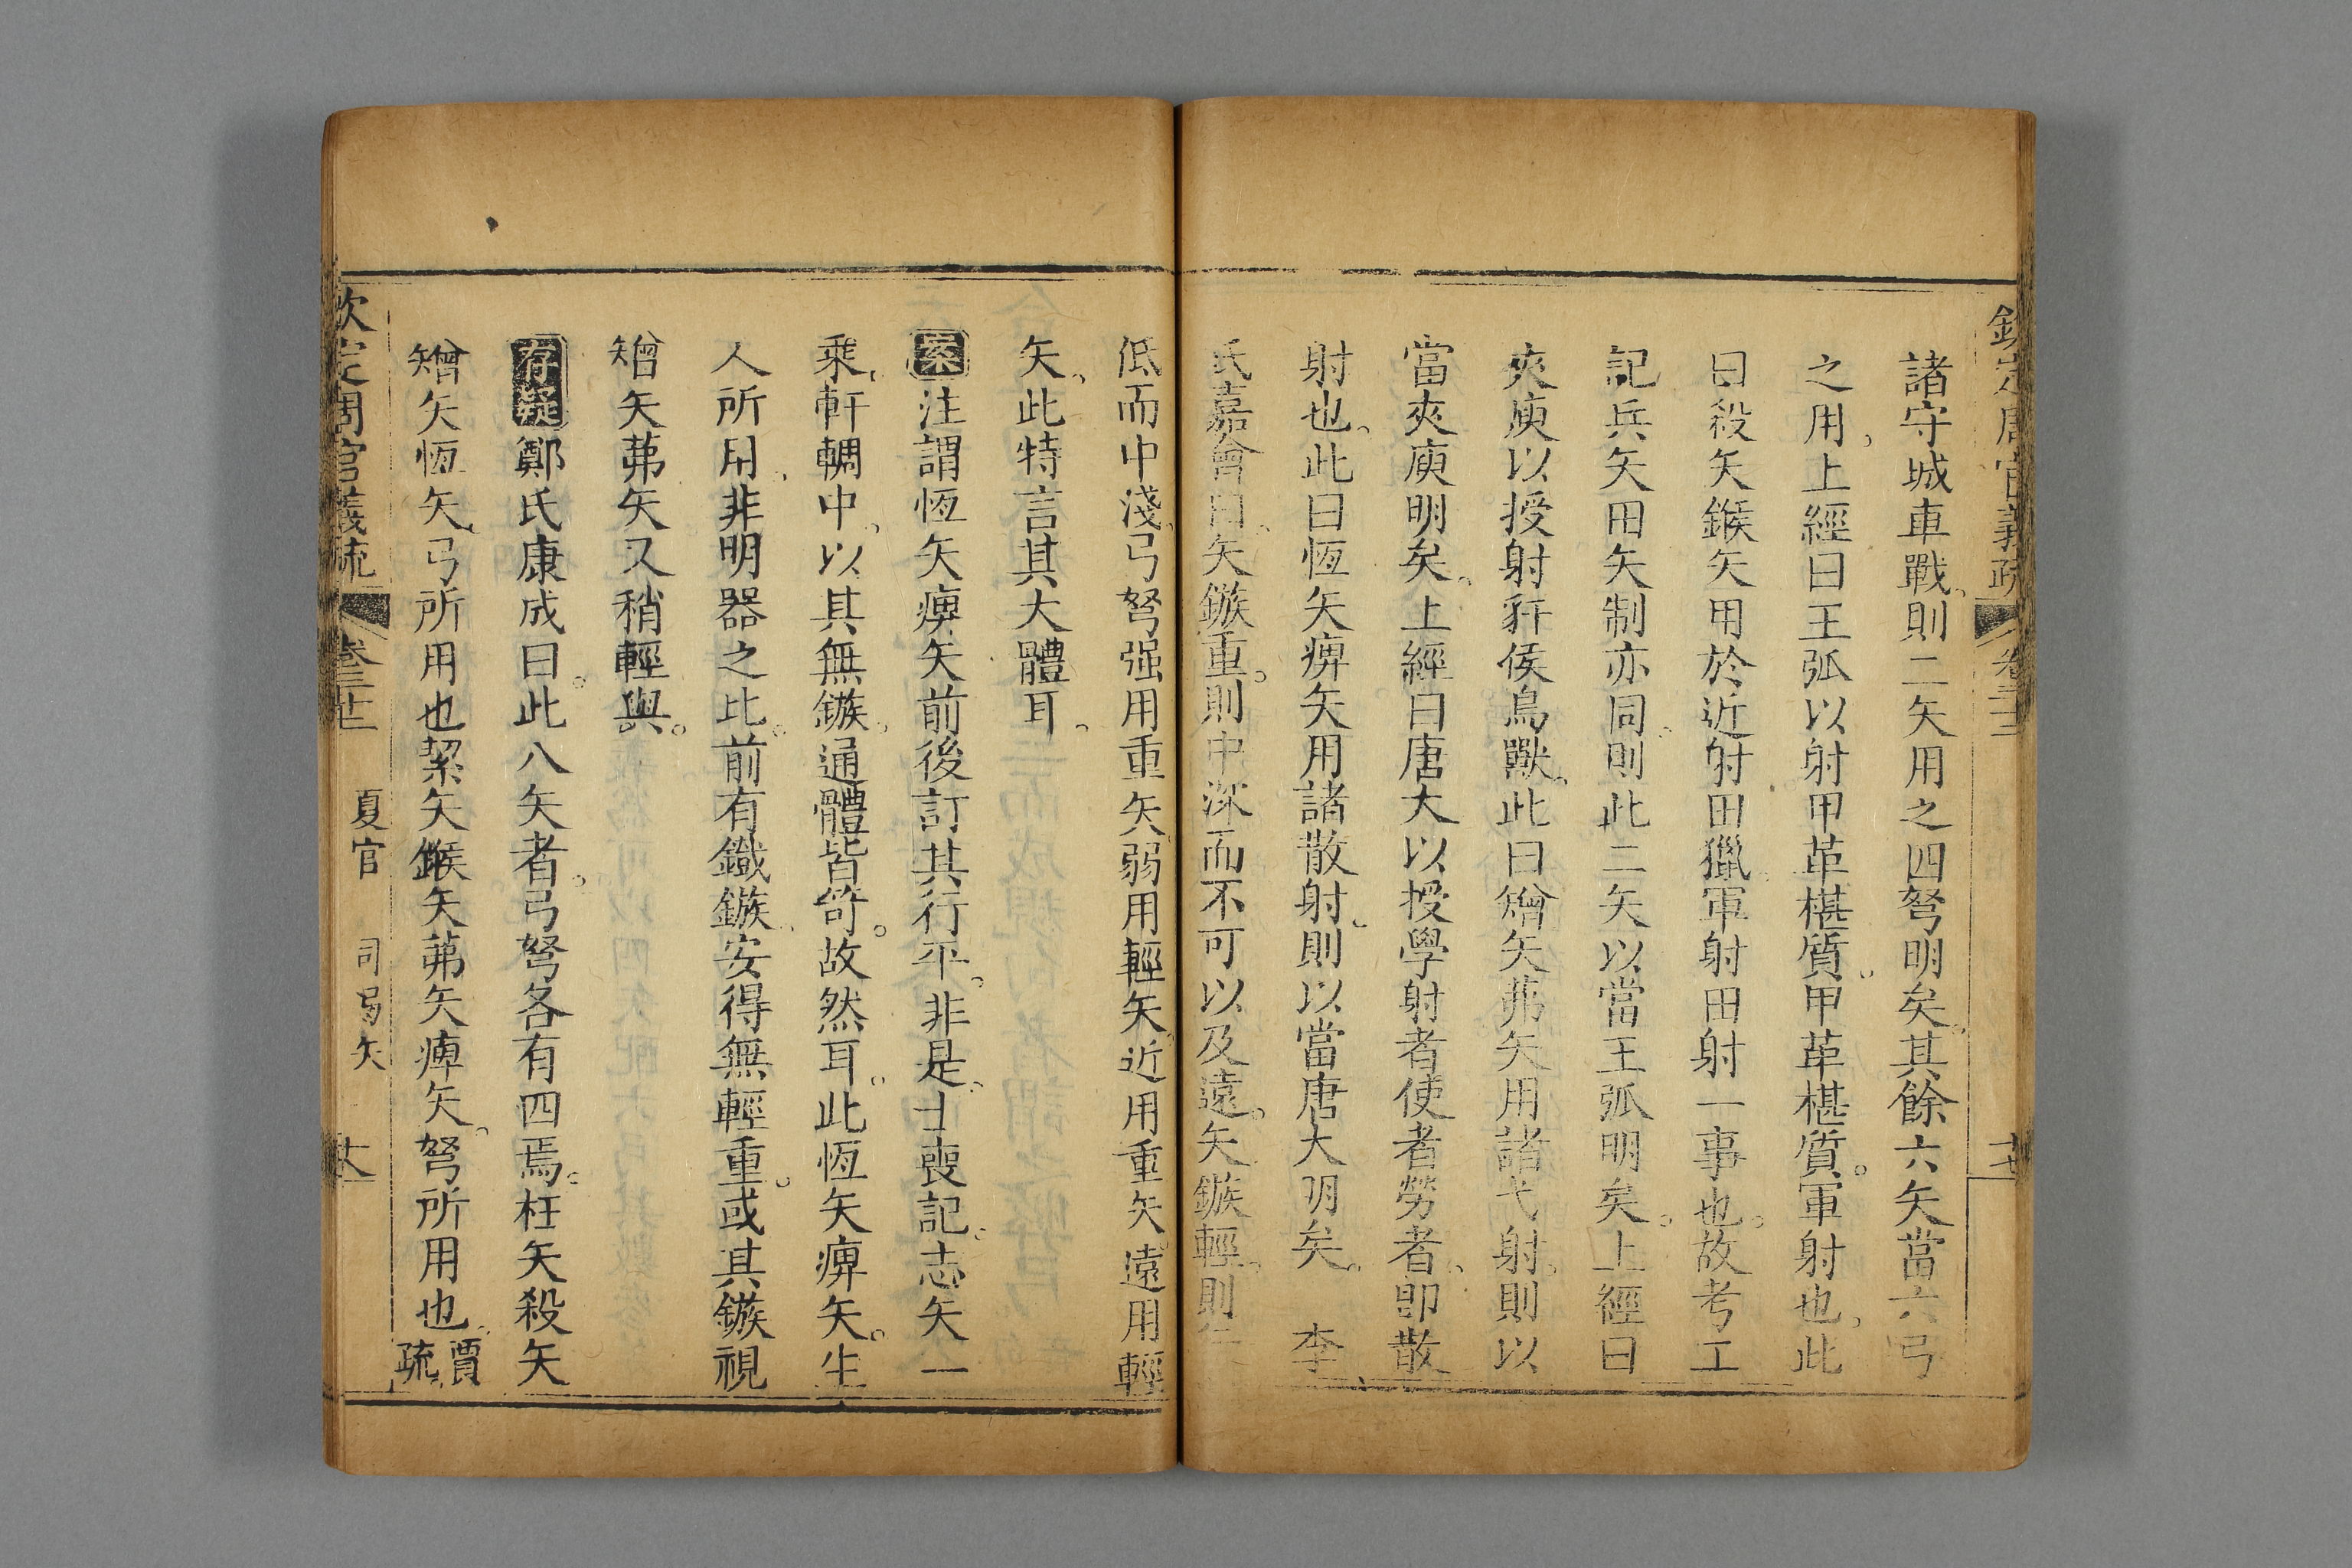 欽定周官義疏 卷三十二 十七
諸守城車戰則二矢用之四弩明矣其餘六矢當六弓
之用上經曰王弧以射甲革椹質甲革椹質軍射也此
曰殺矢鍭矢用於近射田獵軍射田射一事也故考工
記兵矢田矢制亦同則此二矢以當王弧明矣上經曰
夾庾以授射豻侯鳥獸此曰矰矢茀矢用諸弋射則以
當夾庾明矣上經曰唐大以授學射者使者勞者卽散
射也此曰恆矢痹矢用諸散射則以當唐大明矣 李
氏嘉會曰矢鏃重則中深而不可以及遠矢鏃輕則
低而中淺弓弩强用重矢弱用輕矢近用重矢遠用輕
矢此特言其大體耳
案注謂恆矢痹矢前後訂其行平非是士喪記志矢一
乘軒輖中以其無鏃通體皆笴故然耳此恆矢痹矢生
人所用非明器之比前有鐵鏃安得無輕重或其鏃視
矰矢茀矢又稍輕與
存疑鄭氏康成曰此八矢者弓弩各有四焉枉矢殺矢
矰矢恆矢弓所用也絜矢鍭矢茀矢痺矢弩所用也賈疏
欽定周官義疏 卷三十二 夏官 司弓矢 十八